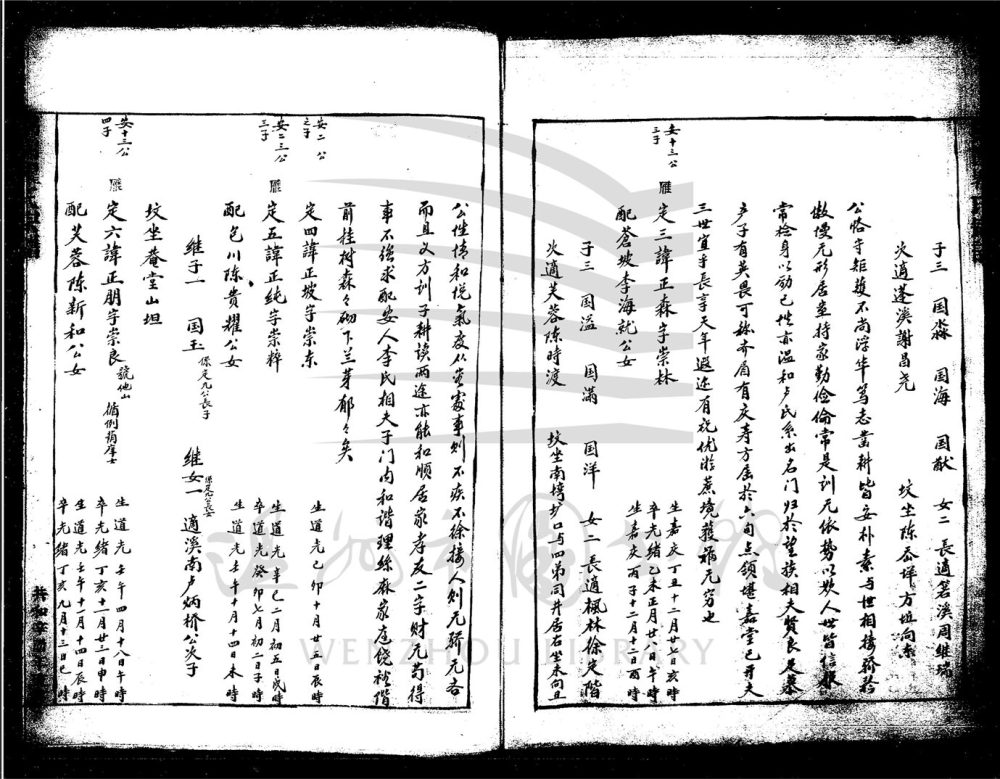 子三 国淼 国海 国猷 女二 長適筶溪周継瑞
次適蓬溪謝昌堯 坟坐陈岙垟方坵向東
公恪守矩矱不尚浮华篤志耕皆安朴素与世相接矜
傲慢元形居室持家勤倹倫常是训元依势以欺人世皆信
常捡身以励己性亦溫和卢氏系出名门归於望族相夫賢良
夕子有英畏可称齐眉有庆寿方屆於六旬点领堪嘉堂已开夫
三世宜乎長享天年遐迩有 蔗境獲禄元穷也
安十三公三子 雁 定三諱正森字崇林 生嘉庆丁丑十二月廿七日亥時 卒光緒乙未正月廿八日午時
配蒼坡李海 公女 生嘉庆丙子十二月十二日酉時
子三 国溢 国滿 国洋 女二 長適楓林徐定階
次適芙蓉陈時渡 坟坐南塆炉口与四弟同井居右坐未向丑
公性情和悦氣度从 處事则不疾不徐接人则元骄元吝
而且义方训子耕读两途亦能和顺居家孝友二字财元苟得
事不強求配安人李氏相夫子门内和谐理絲麻家庭饶裕階
前桂樹森々砌下兰芽郁々矣
安二公之子 定四諱正坡字崇东 生道光己卯十月廿五日辰時
安二三公三子 雁 定五諱正純字崇粹 生道光辛巳二月初五日戌時 卒道光癸卯七月初二日子時
配包川陈貴耀公女 生道光壬午十月十四日未時
継子一 国玉 係定九公長子 継女一 適溪南卢炳桥公次子
坟坐巷堂山坦
安十三公四子 雁 定六諱正朋字崇良 號他山 生道光壬午四月十八日午時 卒光緒丁亥十一月廿三日申時
配芙蓉陈新和公女 生道光壬午十一月十四日辰時 卒光緒丁亥九月十三日巳時
WENZHOU LIBRARY